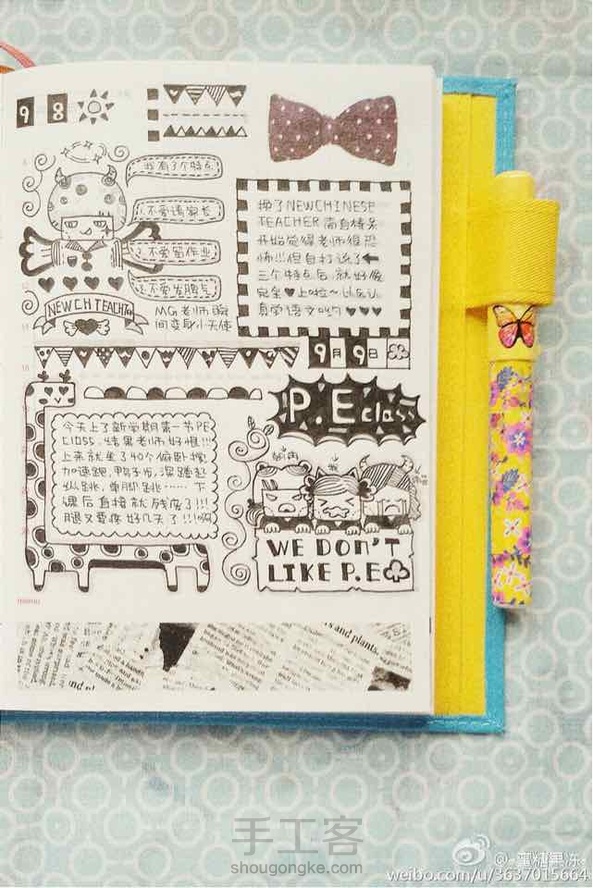 9 8
我有3个特点
1.不爱请家长
2.不爱留作业
3.不爱发脾气
NEW CH TEACHER
MG老师瞬
间变身小天使
换了NEWCHINESE
TEACHER 
开始觉得老师很恐
怖!!!但自打说了
三个特点后,就好像
完全♥上啦~以后认
真学语文哟♥♥♥
9月9日
P.E class
今天上了新学期第一节PE
CLASS,结果老师好狠!!!
上来就坐了40个俯卧撑
加速跑,鸭子步,深蹲起
纵跳,单脚跳……下
课后直接就残废了!!!
腿又要疼好几天了!!!
我
WE DON'T
LIKE P.E
and plants.
手工客
shougongke.com
蜜糖果冻
weibo.com/u/3637015664